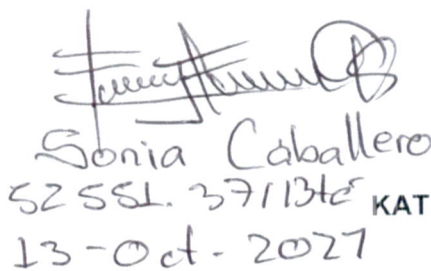 Sonia Caballero
52 551. 371 Bta KAT
13-Oct-2021